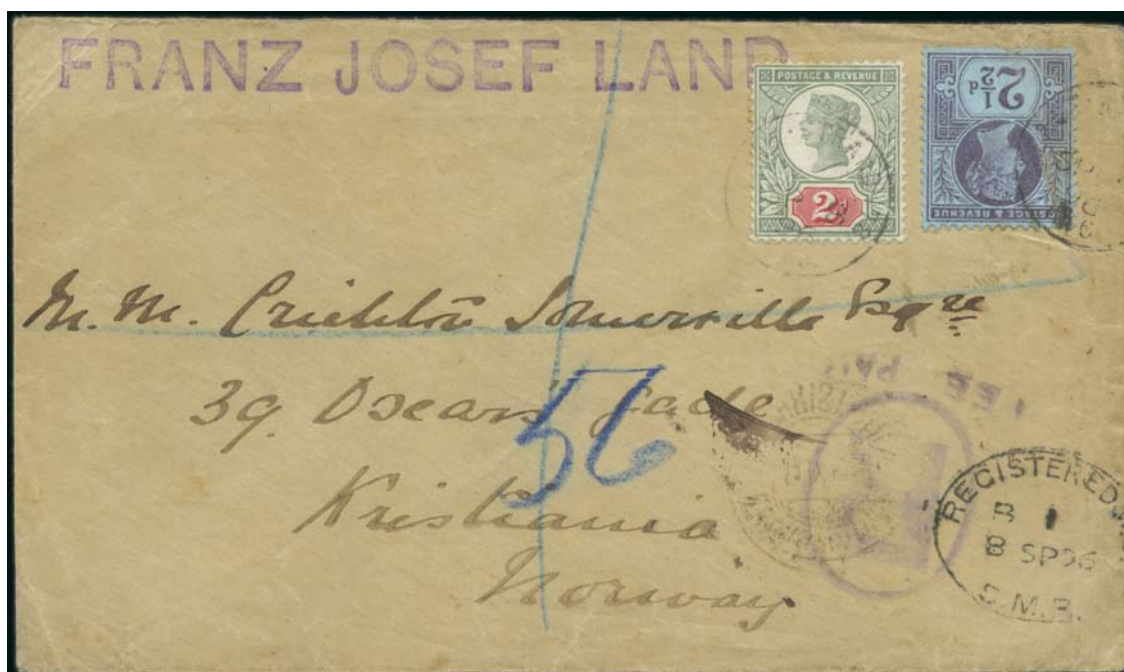 FRANZ JOSEF LAND
POSTAGE & REVENUE
2d
2½d
POSTAGE & REVENUE
M. M. Crichton Somerville Esqre
39 Oscars Gade
56
Kristiania
Norway
FEE PAID
R
REGISTERED
B 1
8 SP 96